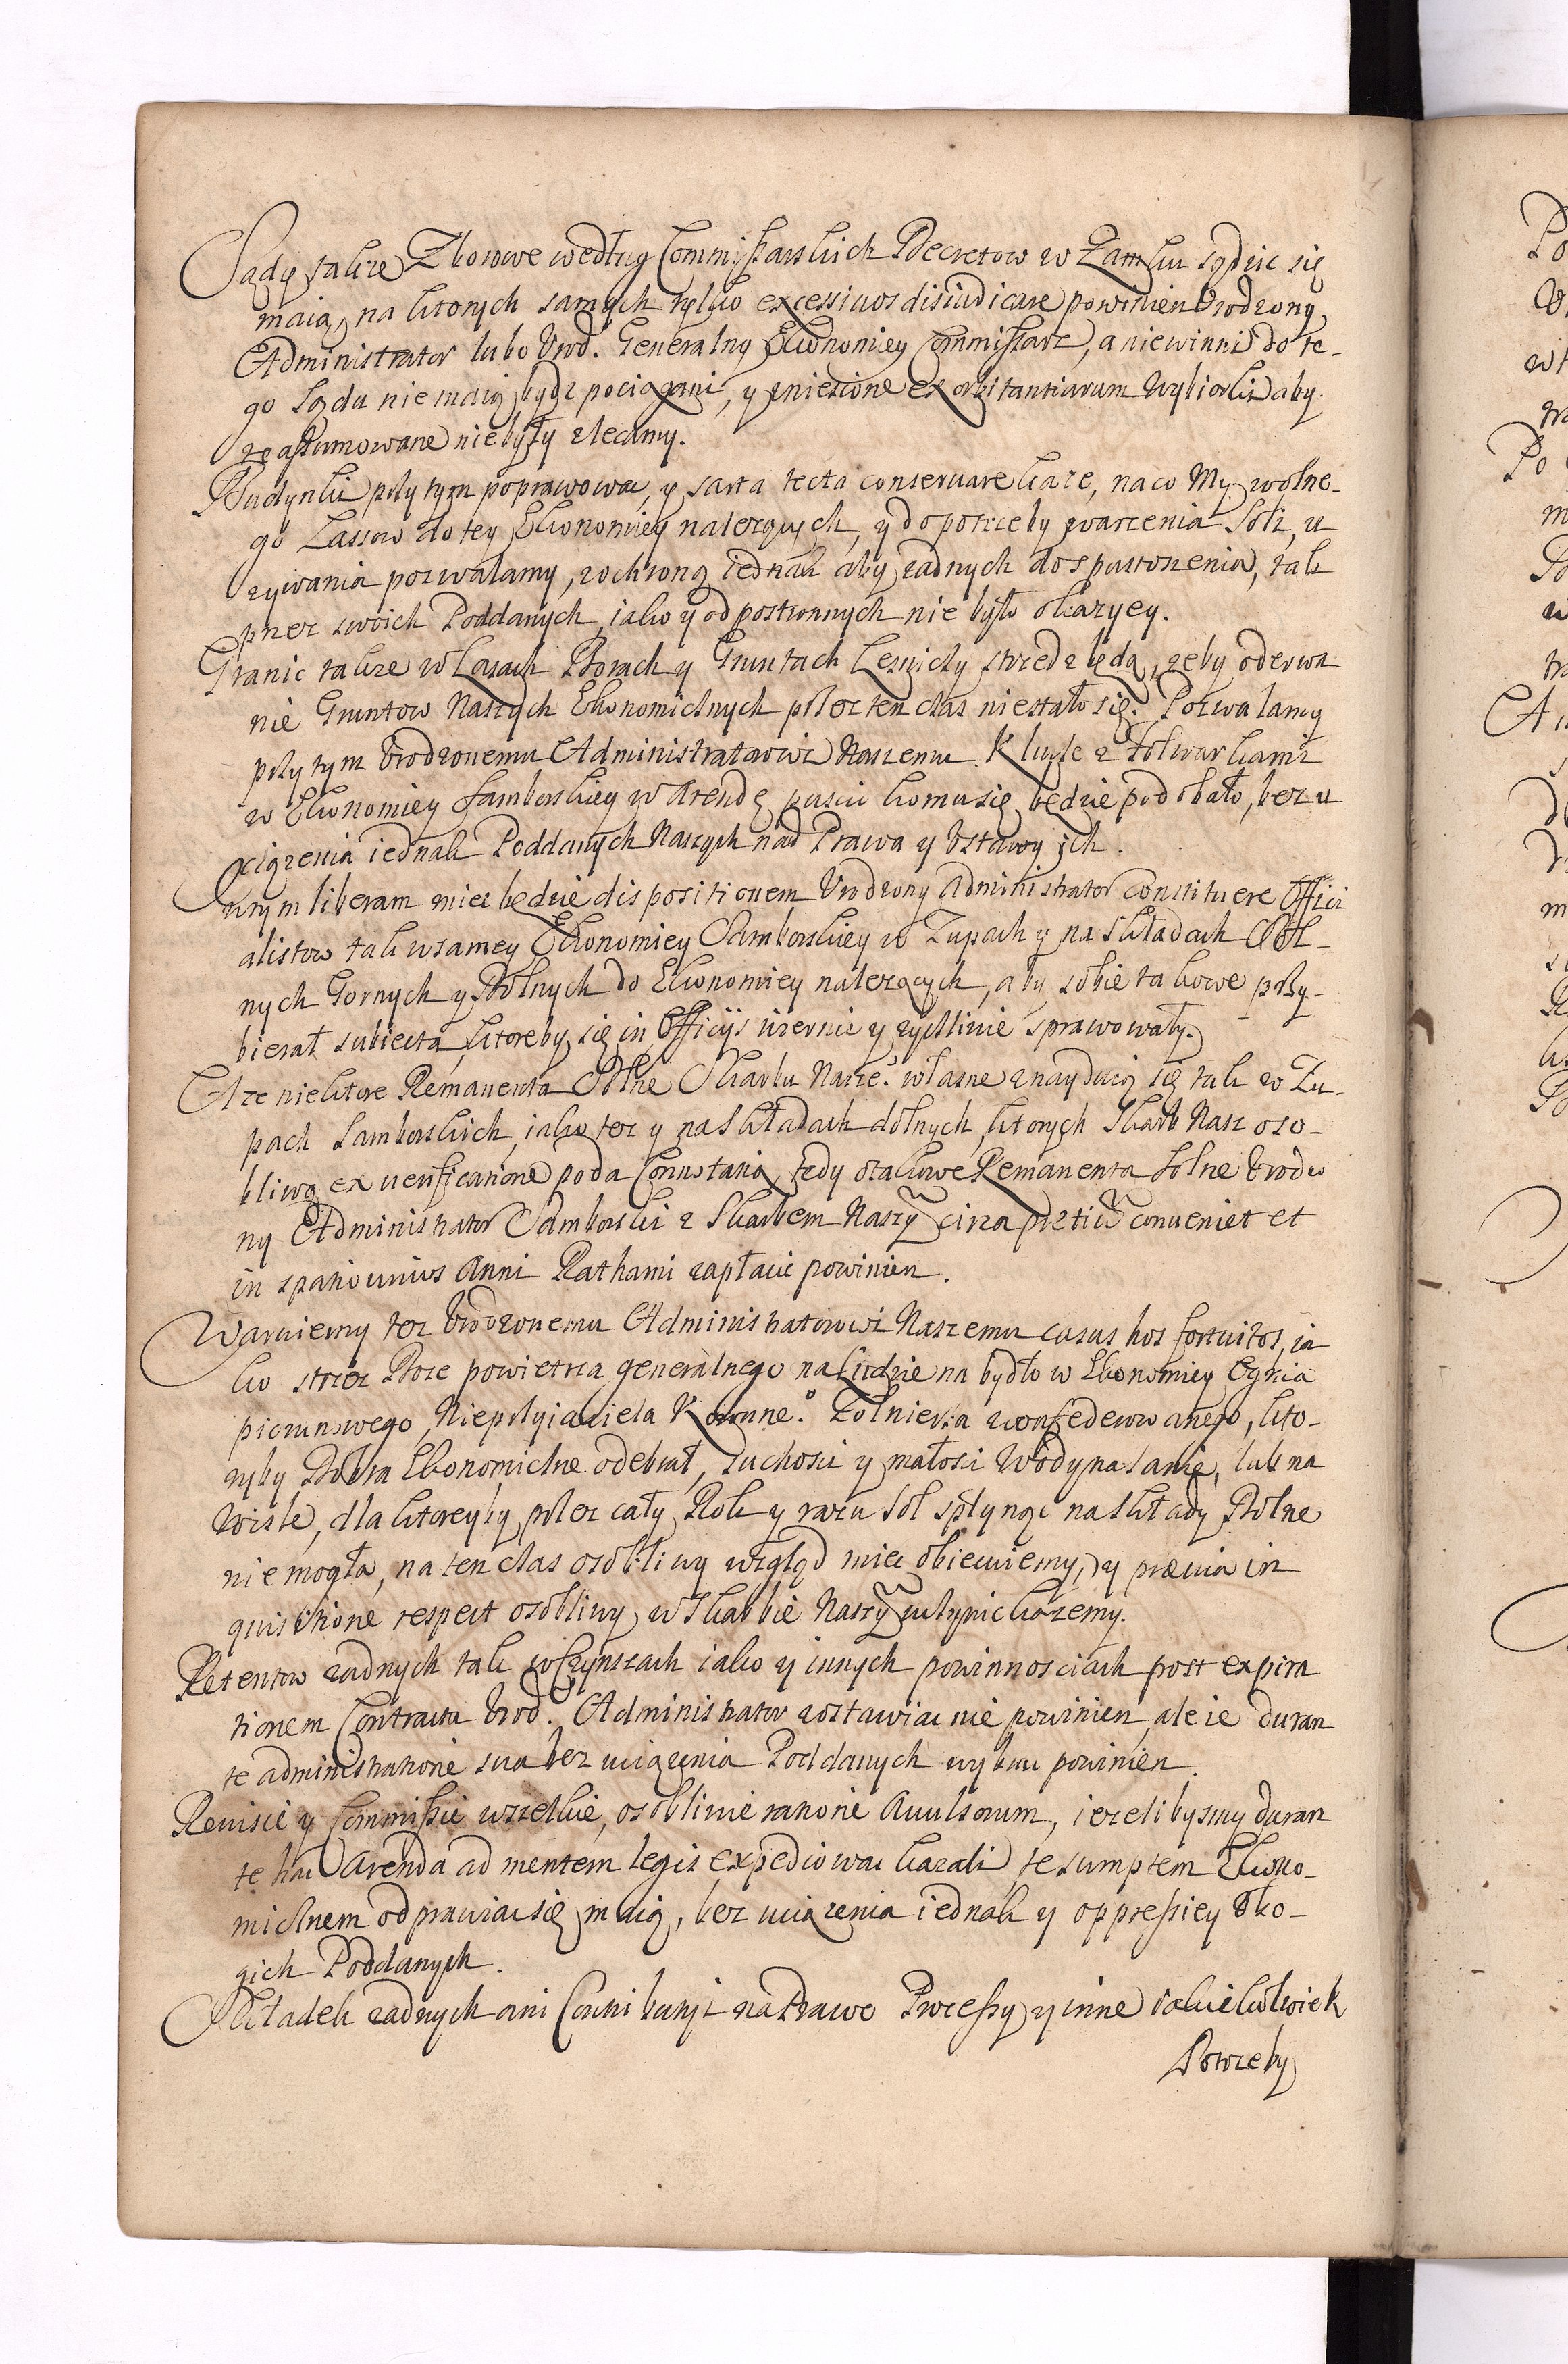 Sądy także Zborowe według Commissarskich Decretow w Zamku sądzic się
maią, na ktorych samych tylko excessivos disiudicare powinien Urodzony
Administrator lubo Urod. Generalny Ekonomiey Commissarz, a niewinni do te-
go Sądu nie maią bydz pociągani, y zniesione exorbitantiarum Wybiorki aby
reassumowane nie były zlecamy.
Budynki przy tym poprawowac, y sarta tecta conservare każe, na co My wolne-
go Lassow do tey Ekonomiey należących, y do potrzeby warzenia Soli, u
żywania pozwalamy, z ochroną iednak aby żadnych do spustoszenia, tak
przez swoich Poddanych, iako y od postronnych nie było okazyey.
Granic także w Lasach Borach y Gruntach Lesniczy strzedz będą, żeby oderwa
nie Gruntow Naszych Ekonomicznych przez ten czas nie stało się. Pozwalamy
przy tym Urodzonemu Administratorowi Naszemu Klucze z folwarkami
w Ekonomiey Samborskiey w Arendę puscic komu się będzie podobało, bez u
ciązenia iednak Poddanych Naszych nad Prawa y Ustawy ich.
W czym liberam miec będzie dispositionem Urodzony Administrator constituere Offici
alistow tak w samey Ekonomiey Samborskiey w Zupach y na Składach Sol-
nych Gornych y Dolnych do Ekonomiey należących, aby sobie takowe przy-
bierał subiecta, ktoreby się in Officijs wiernie y życzliwie sprawowały.
A że niektore Remanenta Solne Skarbu Nasze.º własne znayduią się tak w Zu-
pach Samborskich, iako tez y na Składach dolnych, ktorych Skarb Nasz oso-
bliwą ex verificatione poda Connotatią, tedy o takowe Remanenta Solne Urodzo
ny Administrator Samborski z Skarbem Naszÿ circa pretiũ conveniet et
in spatio unius Anni Rathami zapłacic powinien.
Waruiemy tez Urodzonemu Administratorowi Naszemu casus hos fortuitos, ia
ko strzez Boze powietrza generalnego na Ludzie na bydło w Ekonomiey Ognia
piorunowego, Nieprzyiaciela Koronne.º Zołnierza zconfederowanego, kto-
ryby Dobra Ekonomiczne odebrał, suchosci y małosci Wody na Sanie, lub na
Wisle, dla ktoreyby przez cały Rok y razu Sol spłynąc na Składy Dolne
nie mogła, na ten czas osobliwy wzgląd miec obiecuiemy, y prævia in
quisitione respect osobliwy w Skarbie Naszÿ uczynic każemy.
Retentow żadnych tak w Czynszach iako y innych powinnosciach post expira
tionem Contractu Urod. Administrator zostawiac nie powinien, ale ie duran
te administratione sua bez uciązenia Poddanych wybrac powinien.
Revisie y Commissie wszelkie, osobliwie ratione Avulsorum, iezelibysmy duran
te hac Arenda ad mentem legis expediowac kazali, te sumptem Ekono-
micznem odprawiac się maią, bez uciązenia iednak y oppressiey Ubo-
gich Poddanych.
Składek żadnych ani Contributij na Prawo Processy y inne iakiekolwiek
Potrzeby